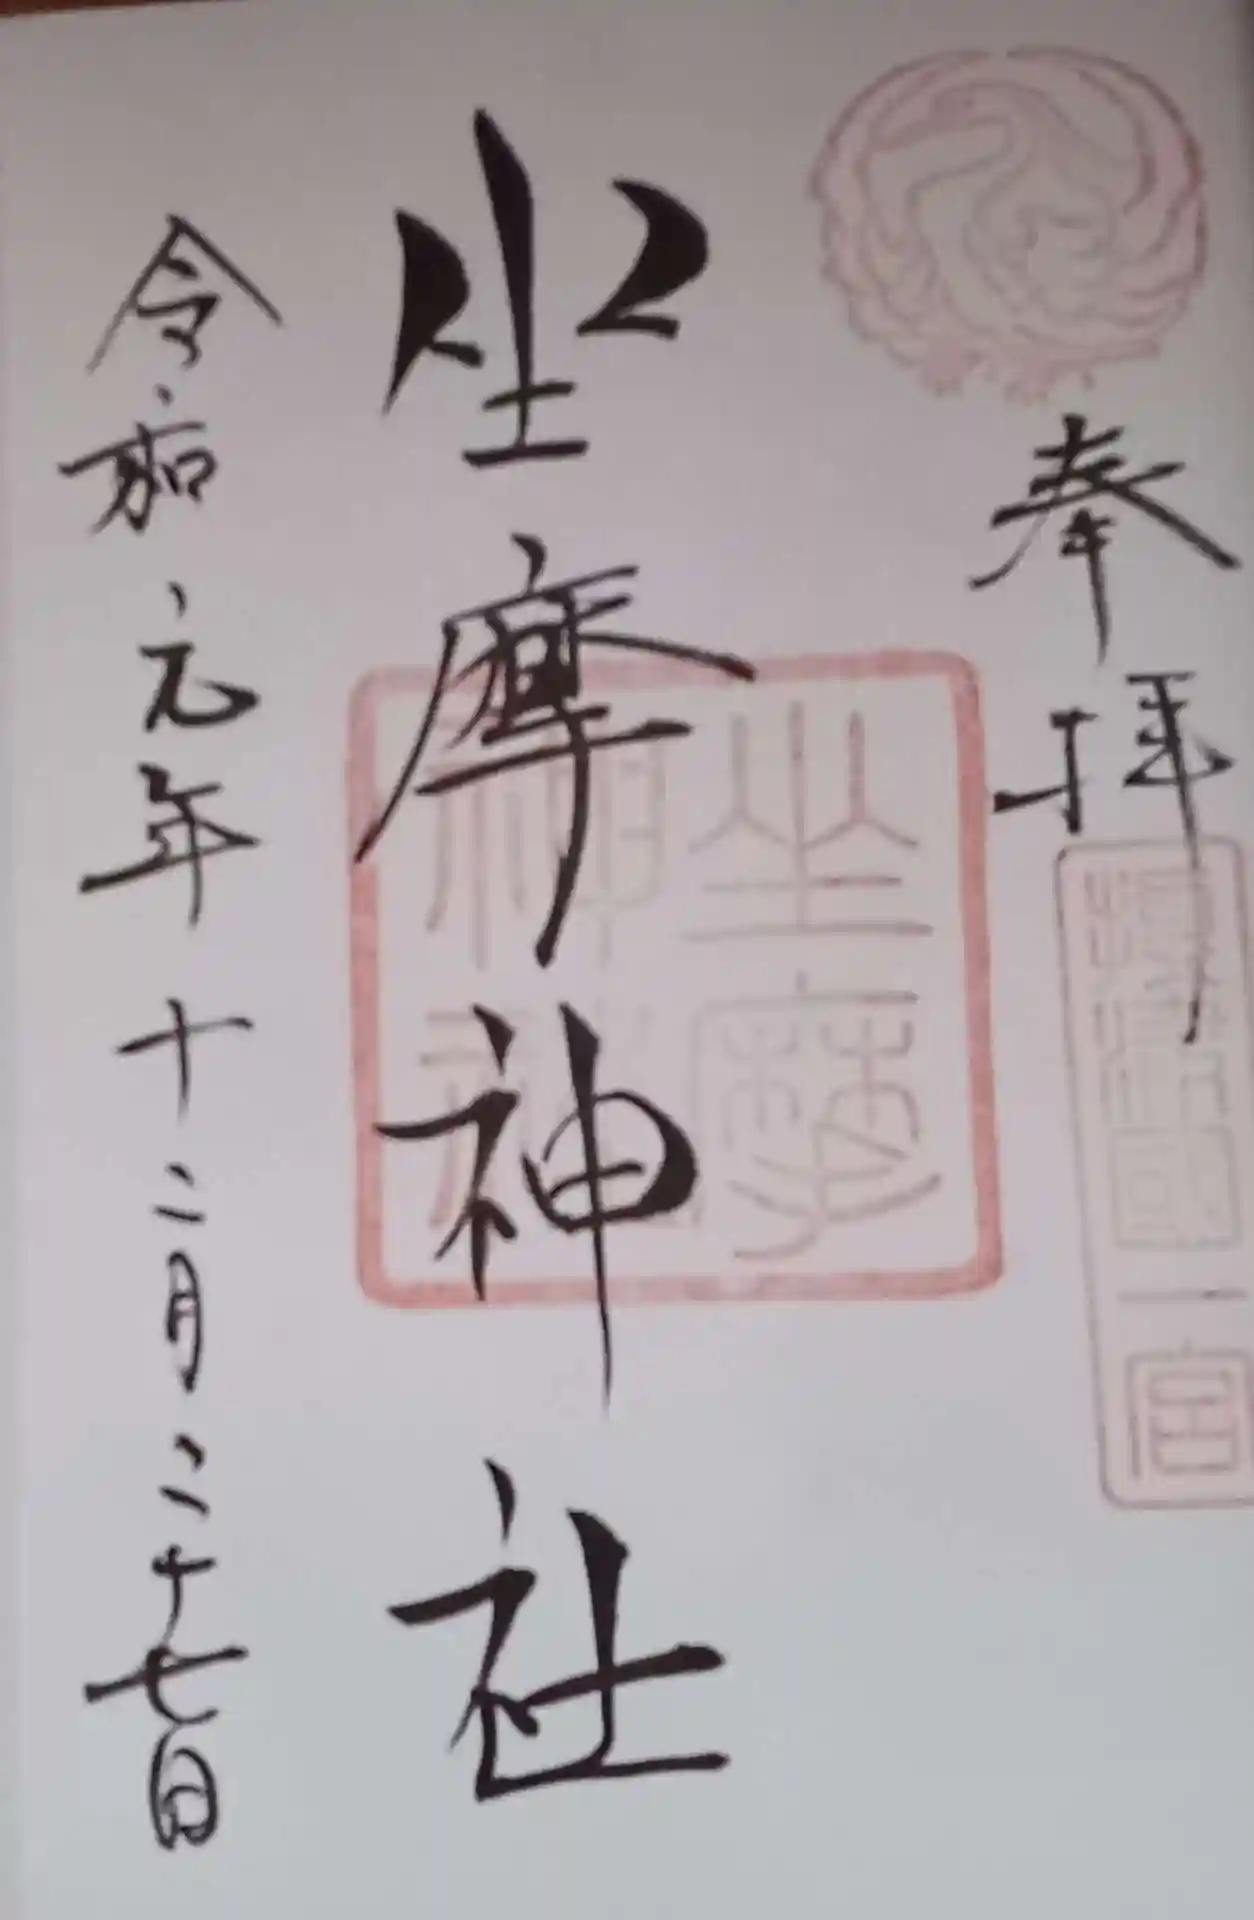 奉拝
攝津國一宮
坐摩神社
坐摩神社
令和元年十二月二十七日